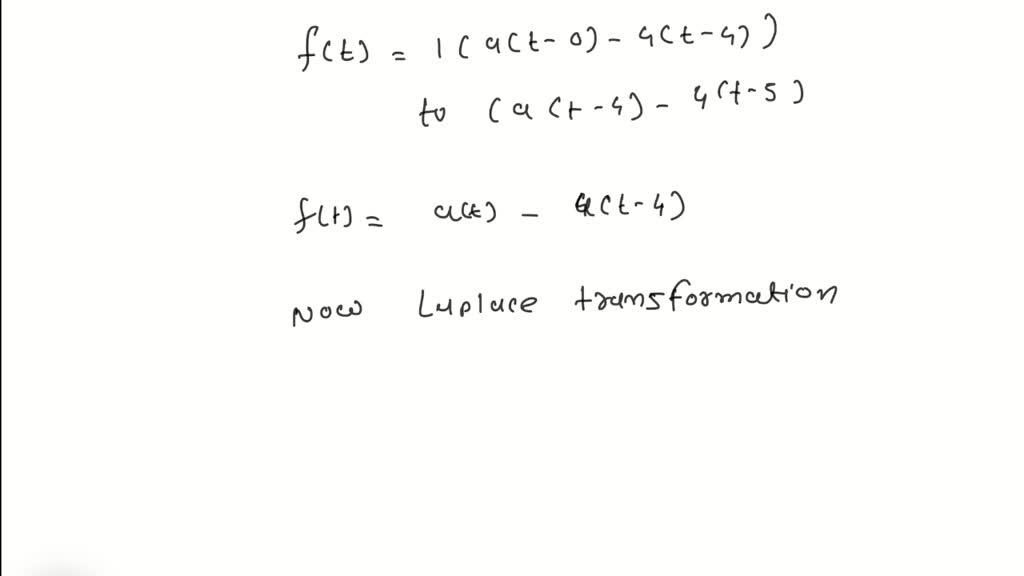 f(t) = 1 ( u(t-0) - u(t-4) )
to ( u(t-4) - u(t-5 )
f(t) = u(t) - u(t-4)
Now Laplace transformation